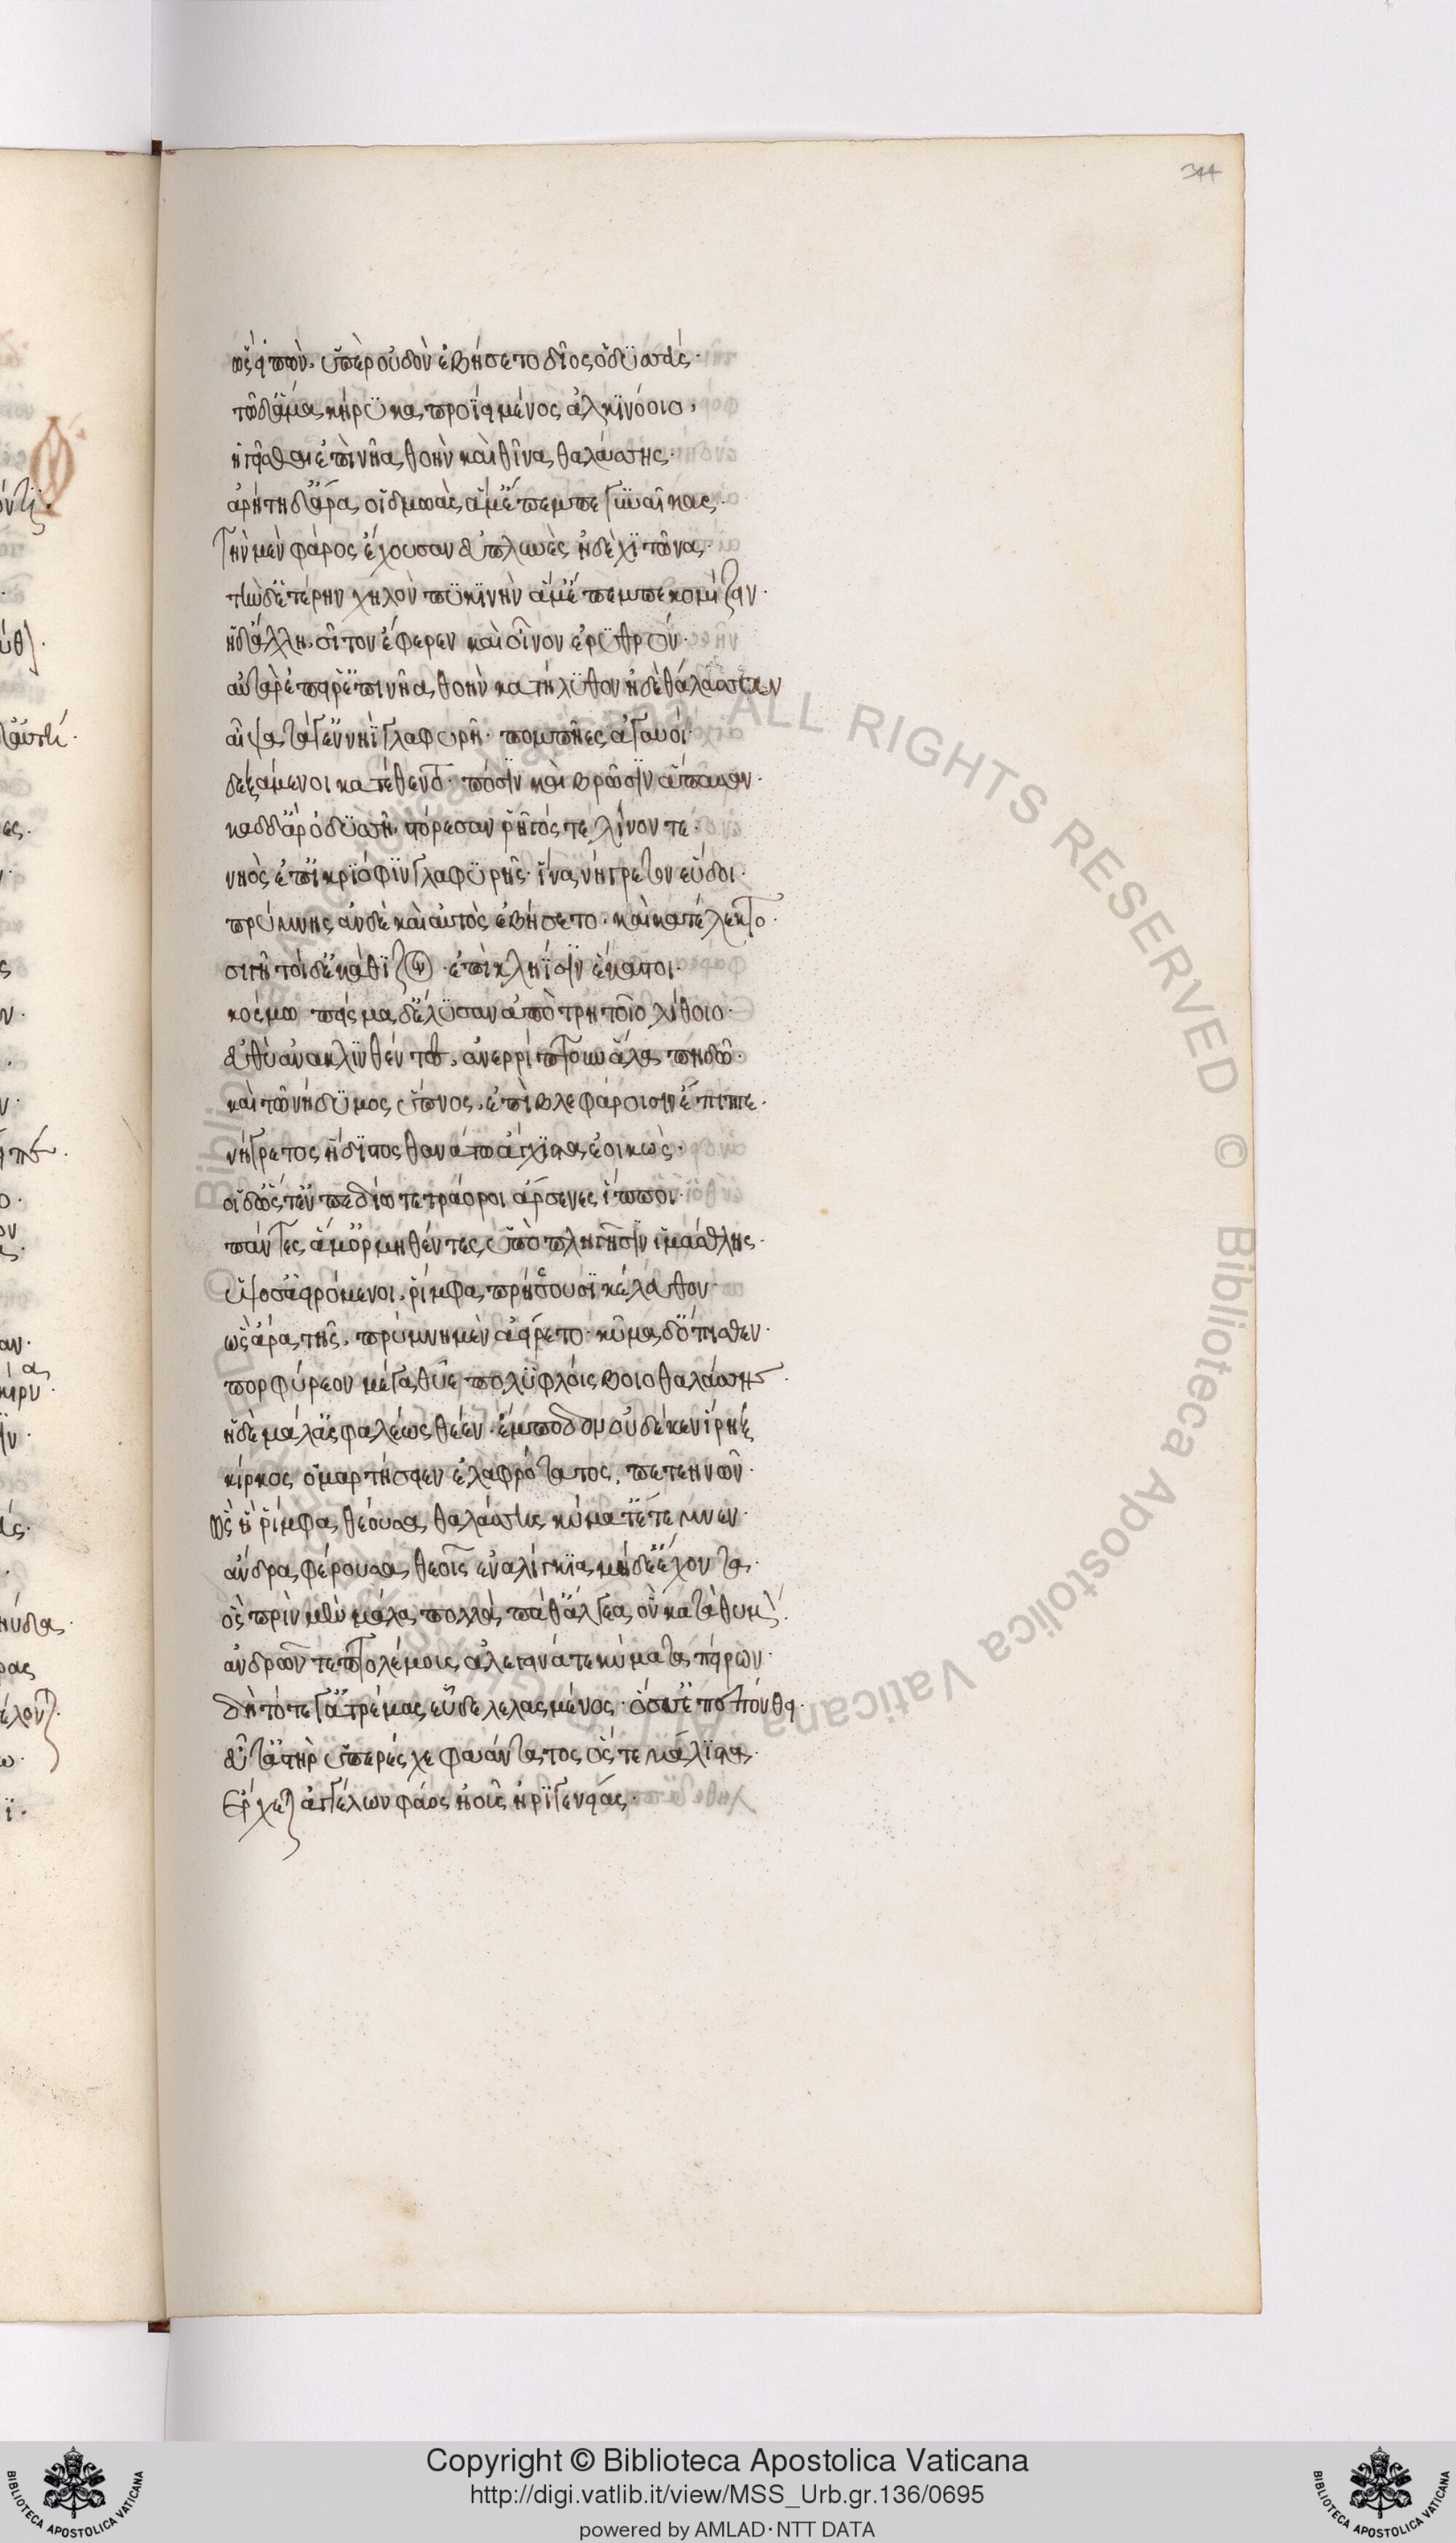 344
ὣς εἰπὼν. ὑπὲρ οὐδὸν ἐβήσετο δῖος ὀδυσσεύς·
τῷ δ' ἅμα κήρυκα προΐει μένος ἀλκινόοιο,
ἡγεῖσθαι ἐπὶ νῆα θοὴν καὶ θῖνα θαλάσσης·
ἀρήτη δ' ἄρα οἱ δμωὰς ἅμ' ἔπεμπε γυναῖκας·
τὴν μὲν φάρος ἔχουσαν ἐϋπλυνὲς ἠδὲ χιτῶνα·
τὴν δ' ἑτέρην χηλὸν πυκινὴν ἅμ' ἔπεμπε κομίζειν·
ἡ δ' ἄλλη. σῖτον ἔφερεν καὶ οἶνον ἐρυθρόν·
αὐτὰρ ἐπεί ῥ' ἐπὶ νῆα θοὴν κατήλυθον ἠδὲ θάλασσαν
αἶψα τά γ' ἐν νηῒ γλαφυρῇ· πομπῆες ἀγαυοί·
δεξάμενοι κατέθεντο· πόσιν καὶ βρῶσιν ἅπασαν·
καδδ' ἄρ' ὀδυσσῆϊ. στόρεσαν ῥῆγός τε λίνον τε·
νηὸς ἐπ' ἰκριόφιν γλαφυρῆς· ἵνα νήγρετον εὕδοι·
πρύμνης ἂν δὲ καὶ αὐτὸς ἐβήσετο. καὶ κατέλεκτο·
σιγῇ τοὶ δὲ κάθιζον· ἐπὶ κληῖσιν ἕκαστοι·
κόσμῳ πεῖσμα δ' ἔλυσαν ἀπὸ τρητοῖο λίθοιο·
εὖθ' οἱ ἀνακλινθέντες. ἀνερρίπτουν ἅλα πηδῷ·
καὶ τῷ νήδυμος ὕπνος. ἐπὶ βλεφάροισιν ἔπιπτε·
νήγρετος ἥδιστος θανάτῳ ἄγχιστα ἐοικώς·
οἱ δ' ὥς τ' ἐν πεδίῳ τετράοροι ἄρσενες ἵπποι·
πάντες ἅμ' ὁρμηθέντες ὑπὸ πληγῇσιν ἱμάσθλης·
ὑψόσ' ἀειρόμενοι. ῥίμφα πρήσσουσι κέλευθον·
ὣς ἄρα τῆς. πρύμνη μὲν ἀείρετο· κῦμα δ' ὄπισθεν·
πορφύρεον μέγα θῦε πολυφλοίσβοιο θαλάσσης·
ἡ δὲ μάλ' ἀσφαλέως θέεν ἔμπεδον οὐδέ κεν ἴρηξ
κίρκος ὁμαρτήσειεν ἐλαφρότατος, πετεηνῶν·
ὣς ἡ ῥίμφα θέουσα θαλάσσης κύματ' ἔτεμνεν·
ἄνδρα φέρουσα θεοῖς ἐναλίγκια μήδε' ἔχοντα·
ὃς πρὶν μὲν μάλα πολλὰ πάθ' ἄλγεα ὃν κατὰ θυμόν·
ἀνδρῶν τε πτολέμους, ἀλεγεινά τε κύματα πείρων·
δὴ τότε γ' ἀτρέμας εὗδε λελασμένος· ὅσσ' ἐπεπόνθει·
εὖτ' ἀστὴρ ὑπερέσχε φαάντατος ὅς τε μάλιστα·
Ἔρχεται ἀγγέλλων φάος ἠοῦς ἠριγενείας·
Copyright © Biblioteca Apostolica Vaticana
http://digi.vatlib.it/view/MSS_Urb.gr.136/0695
powered by AMLAD·NTT DATA